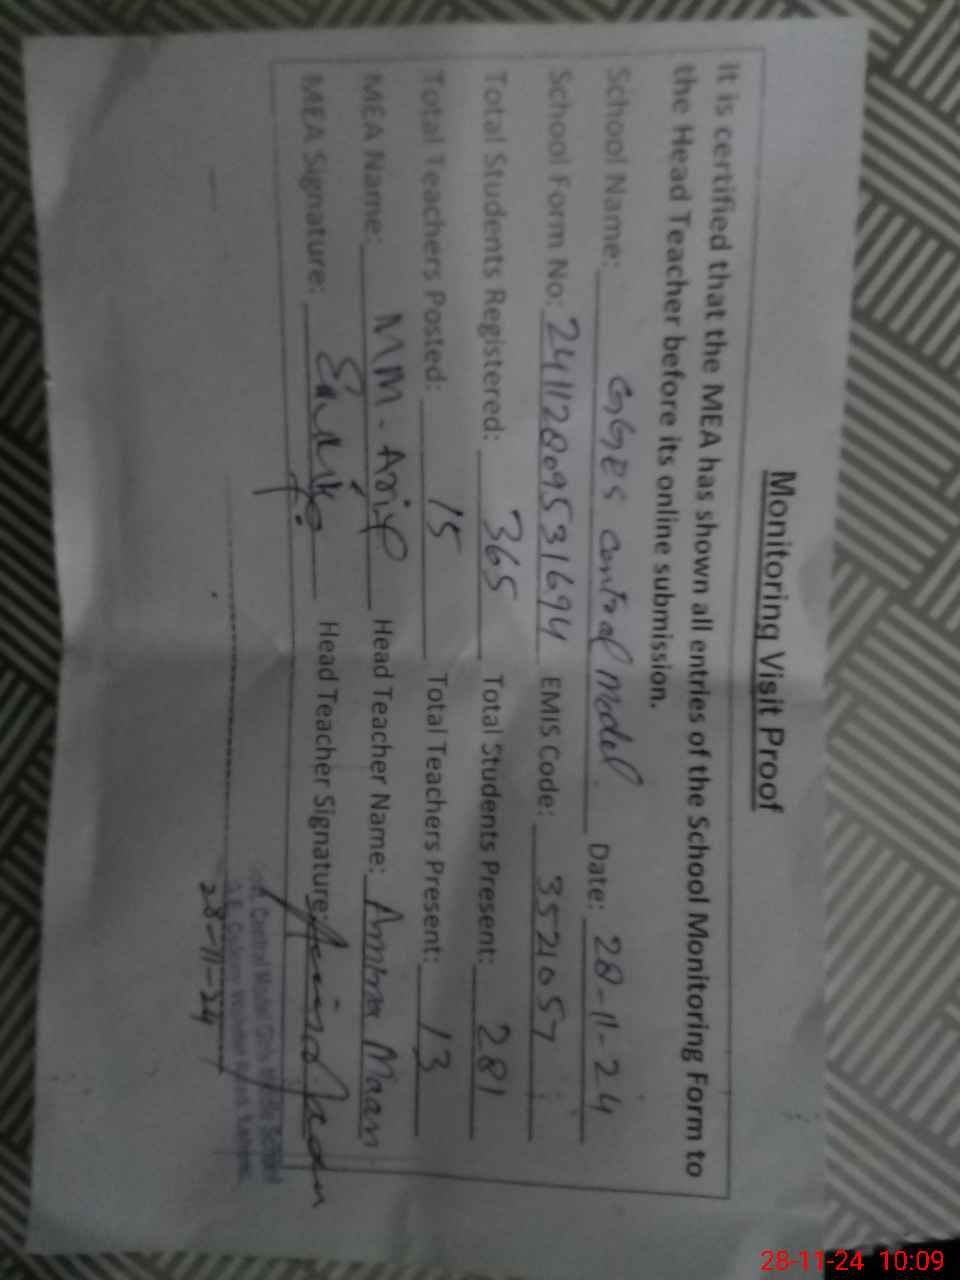 Monitoring Visit Proof
It is certified that the MEA has shown all entries of the School Monitoring Form to
the Head Teacher before its online submission.
School Name: GGES central model. Date: 28-11-24
School Form No: 241128095531694 EMIS Code: 3521057
Total Students Registered: 365 Total Students Present: 281
Total Teachers Posted: 15 Total Teachers Present: 13
MEA Name: MM-Arif Head Teacher Name: Ambra Maan
MEA Signature: Head Teacher Signature:
Central Model Girls School
28-11-24
28-11-24 10:09